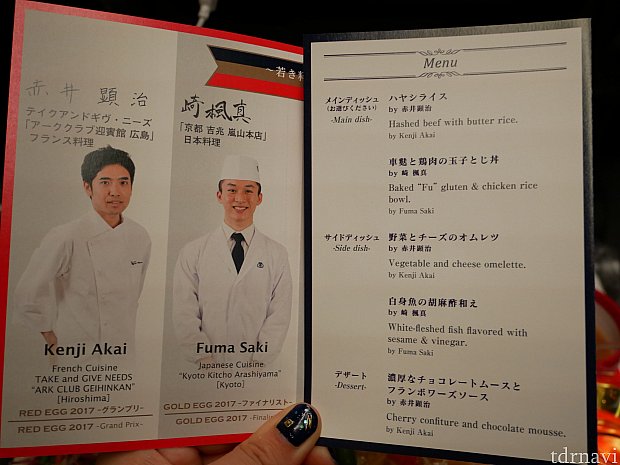 ～若き料
赤井 顕治
テイクアンドギヴ・ニーズ
「アーククラブ迎賓館 広島」
フランス料理
崎 楓真
「京都 吉兆 嵐山本店」
日本料理
Kenji Akai
French Cuisine
TAKE and GIVE NEEDS
"ARK CLUB GEIHINKAN"
[Hiroshima]
RED EGG 2017 -グランプリ-
RED EGG 2017 -Grand Prix-
Fuma Saki
Japanese Cuisine
"Kyoto Kitcho Arashiyama"
[Kyoto]
GOLD EGG 2017 -ファイナリスト-
GOLD EGG 2017 -Finalis
Menu
メインディッシュ
(お選びください)
-Main dish-
ハヤシライス
by 赤井顕治
Hashed beef with butter rice.
by Kenji Akai
車麩と鶏肉の玉子とじ丼
by 崎 楓真
Baked "Fu" gluten & chicken rice
bowl.
by Fuma Saki
サイドディッシュ
-Side dish-
野菜とチーズのオムレツ
by 赤井顕治
Vegetable and cheese omelette.
by Kenji Akai
白身魚の胡麻酢和え
by 崎 楓真
White-fleshed fish flavored with
sesame & vinegar.
by Fuma Saki
デザート
-Dessert-
濃厚なチョコレートムースと
フランボワーズソース
by 赤井顕治
Cherry confiture and chocolate mousse.
by Kenji Akai
tdrnavi